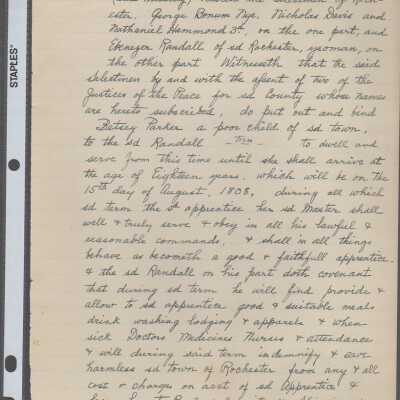 STAPLES
ester. George Bonum Nye, Nicholas Davis and
Nathaniel Hammond 3d, on the one part, and
Ebenezer Randall of sd Rochester, yeoman, on
the other part Witnesseth that he said
selectmen by and with the assent of two of the
Justices of the Peace for sd County whose names
are hereto subscribed, do put out and bind
Betsey Parker a poor child of sd town,
to the sd Randall to dwell and
serve from this time until she shall arrive at
the age of Eighteen years. which will be on the
15th day of August, 1808, during all which
sd term the sd apprentice her sd Master shall
well & truly serve & obey in all his lawful &
reasonable commands. & shall in all things
behave as becometh a good & faithfull apprentice.
& the sd Randall on his part doth covenant
that during sd term he will find, provide &
allow to sd apprentice good & suitable meals
drink washing lodging & apparels & when
sick Doctors Medicines Nurses & attendance
& will during said term indemnify & save
harmless sd town of Rochester from any & all
cost & charges on acct of sd Apprentice &